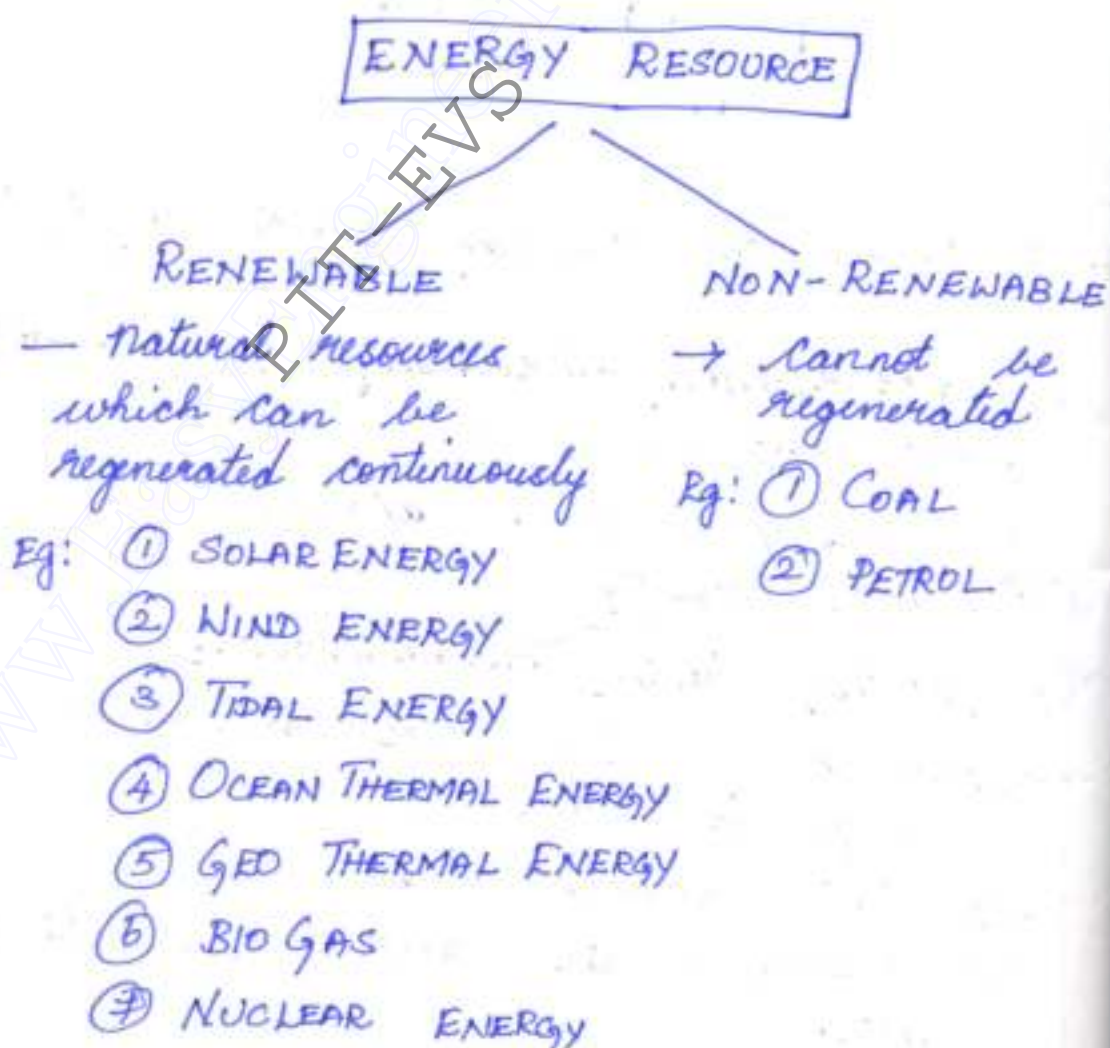 ENERGY RESOURCE
RENEWABLE
— natural resources
which can be
regenerated continuously
Eg: ① SOLAR ENERGY
② WIND ENERGY
③ TIDAL ENERGY
④ OCEAN THERMAL ENERGY
⑤ GEO THERMAL ENERGY
⑥ BIO GAS
⑦ NUCLEAR ENERGY
NON-RENEWABLE
→ cannot be
regenerated
Eg: ① COAL
② PETROL
PIT-EVS